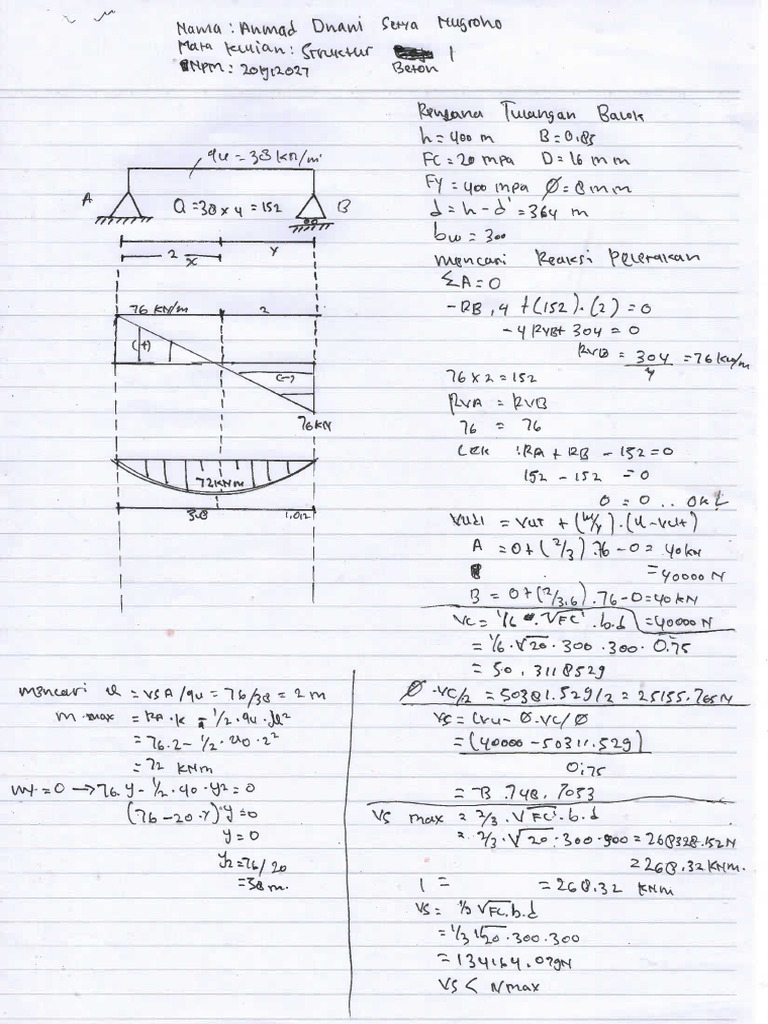 Nama : Ahmad Dhani Setya Nugroho
Mata Kuliah : Struktur Beton 1
NPM : 201912027
qu = 38 kN/m
A
Q = 38 x 4 = 152
B
2
x
Y
76 KN/m
2
(+)
(-)
76 KN
72 KNm
3.8
Rencana Tulangan Balok
h = 400 m B = 0,85
FC = 20 mpa D = 16 mm
Fy = 400 mpa Ø = 8 mm
d = h - d' = 364 m
bw = 300
mencari Reaksi Peletakan
ΣA = 0
- RB . 4 + (152) . (2) = 0
- 4 RVB + 304 = 0
RVB = 304/4 = 76 kN/m
76 x 2 = 152
RVA = RVB
76 = 76
Cek : RA + RB - 152 = 0
152 - 152 = 0
0 = 0 .. OK!
A = 0 + (2/3) . 76 - 0 = 40 kN
= 40000 N
B = 0 + (2/3.6) . 76 - 0 = 40 kN
= 40000 N
VC = 1/6 . √FC' . b . d
= 1/6 . √20 . 300 . 300 . 0.75
= 50.3118529
Ø . VC/2 = 50381.529/2 = 25155.765 N
VS = (Vu - Ø . VC / Ø
= (40000 - 50311.529)
0.75
= -13.748.7053
VS max = 2/3 . √FC' . b . d
= 2/3 . √20 . 300 . 300 = 268328.152 N
= 268.32 KNm.
1 = = 268.32 KNm
VS = 1/3 √FC . b . d
= 1/3 √20 . 300 . 300
= 134164.079 N
VS < Nmax
mencari x = VSA / qu = 76/38 = 2 m
m . max = RA . x - 1/2 . qu . x²
= 76.2 - 1/2 . 40 . 2²
= 72 KNm
MY = 0 → 76 . Y - 1/2 . 40 . Y2 = 0
(76 - 20 . Y) . y = 0
y = 0
Y2 = 76/20
= 38 m.